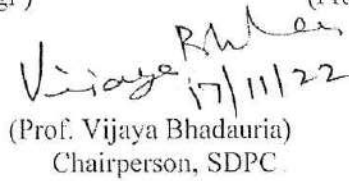 Vijaya Bha
17/11/22
(Prof. Vijaya Bhadauria)
Chairperson, SDPC